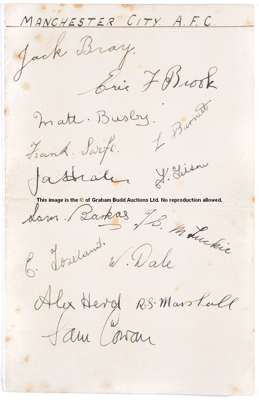 MANCHESTER CITY A.F.C
Jack Bray.
Eric F Brook
Matt. Busby.
L Barnett
Frank. Swift.
Jas Heale
F. Tilson
This image is the © of Graham Budd Auctions Ltd. No reproduction allowed.
Sam. Barkas
J.S. McLuckie
C. Toseland.
W. Dale
Alex Herd R.S. Marshall
Sam Cowan